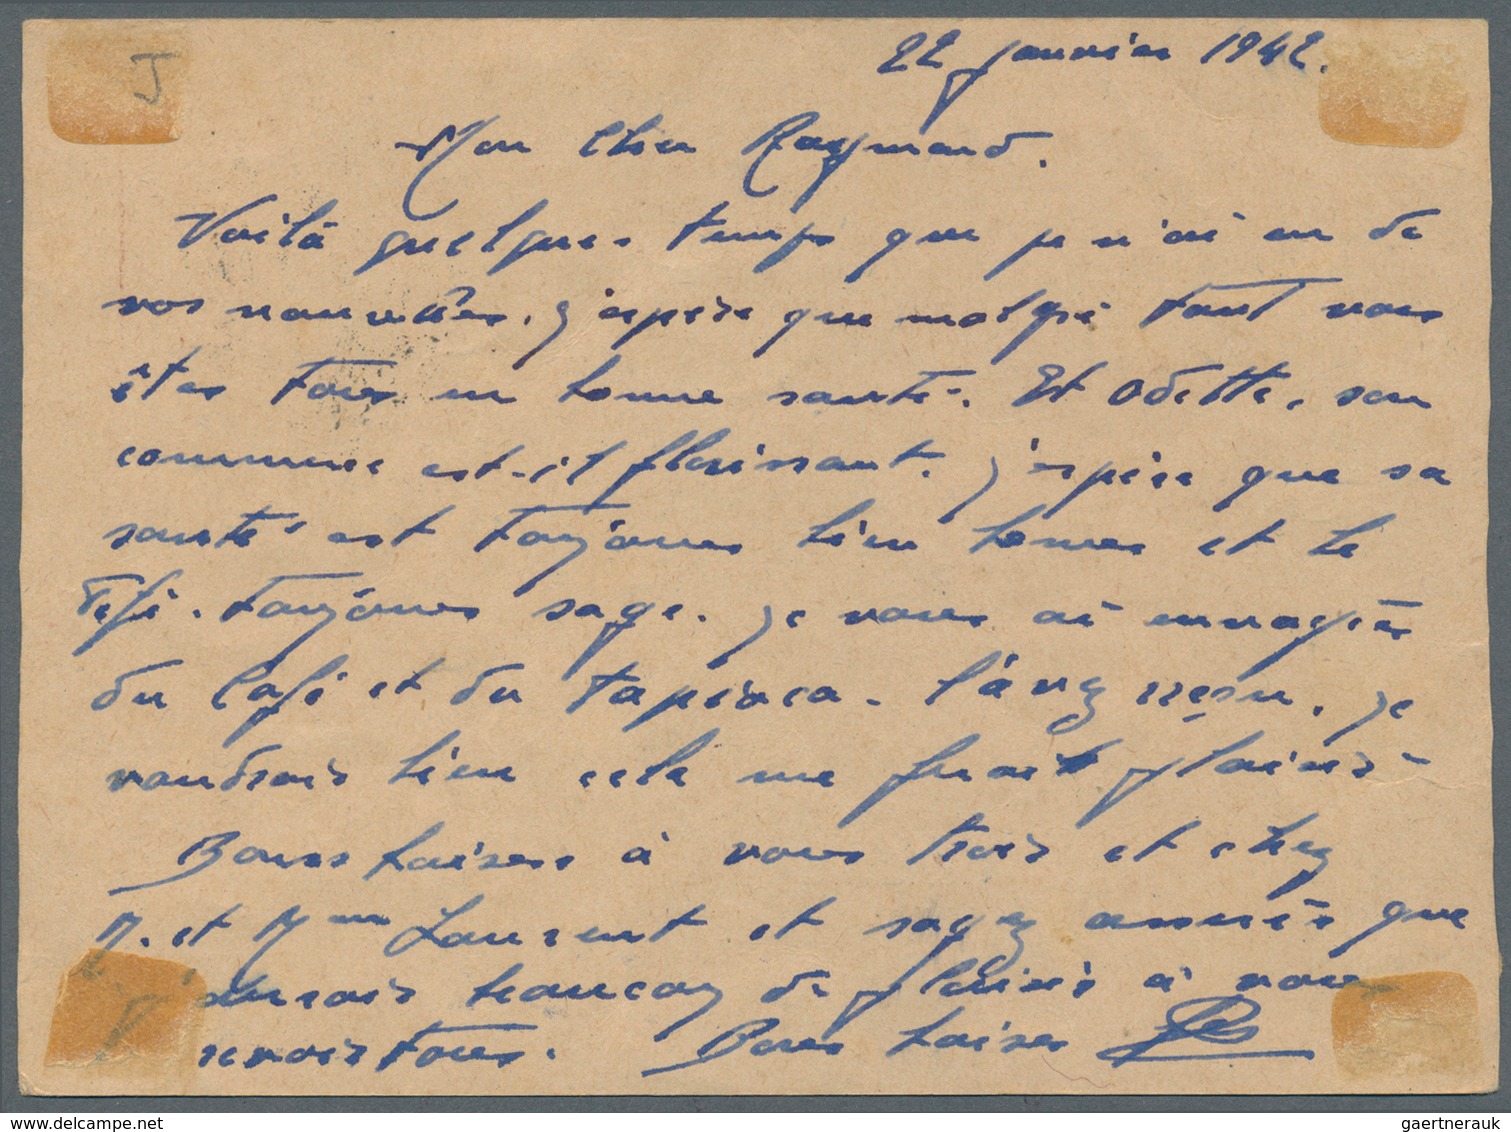 J
22 janvier 1942.
Mon Cher Raymond.
Voilà quelque temps que je n'ai eu de
vos nouvelles. J'espère que malgré tout vous
êtes tous en bonne santé. Et Odette, son
commerce est-il florissant. J'espère que sa
santé est toujours bien bonne et le
Fifi. toujours sage. Je vous ai envoyé
du Café et du tapioca. l'avez reçu. Je
voudrais bien cela me ferait plaisir
Bons baisers à vous trois et chez
M. et Mme Laurent et soyez assurés que
j'aurais beaucoup de plaisir à vous
revoir tous. Bons baisers
gaertnerauk@delcampe.net